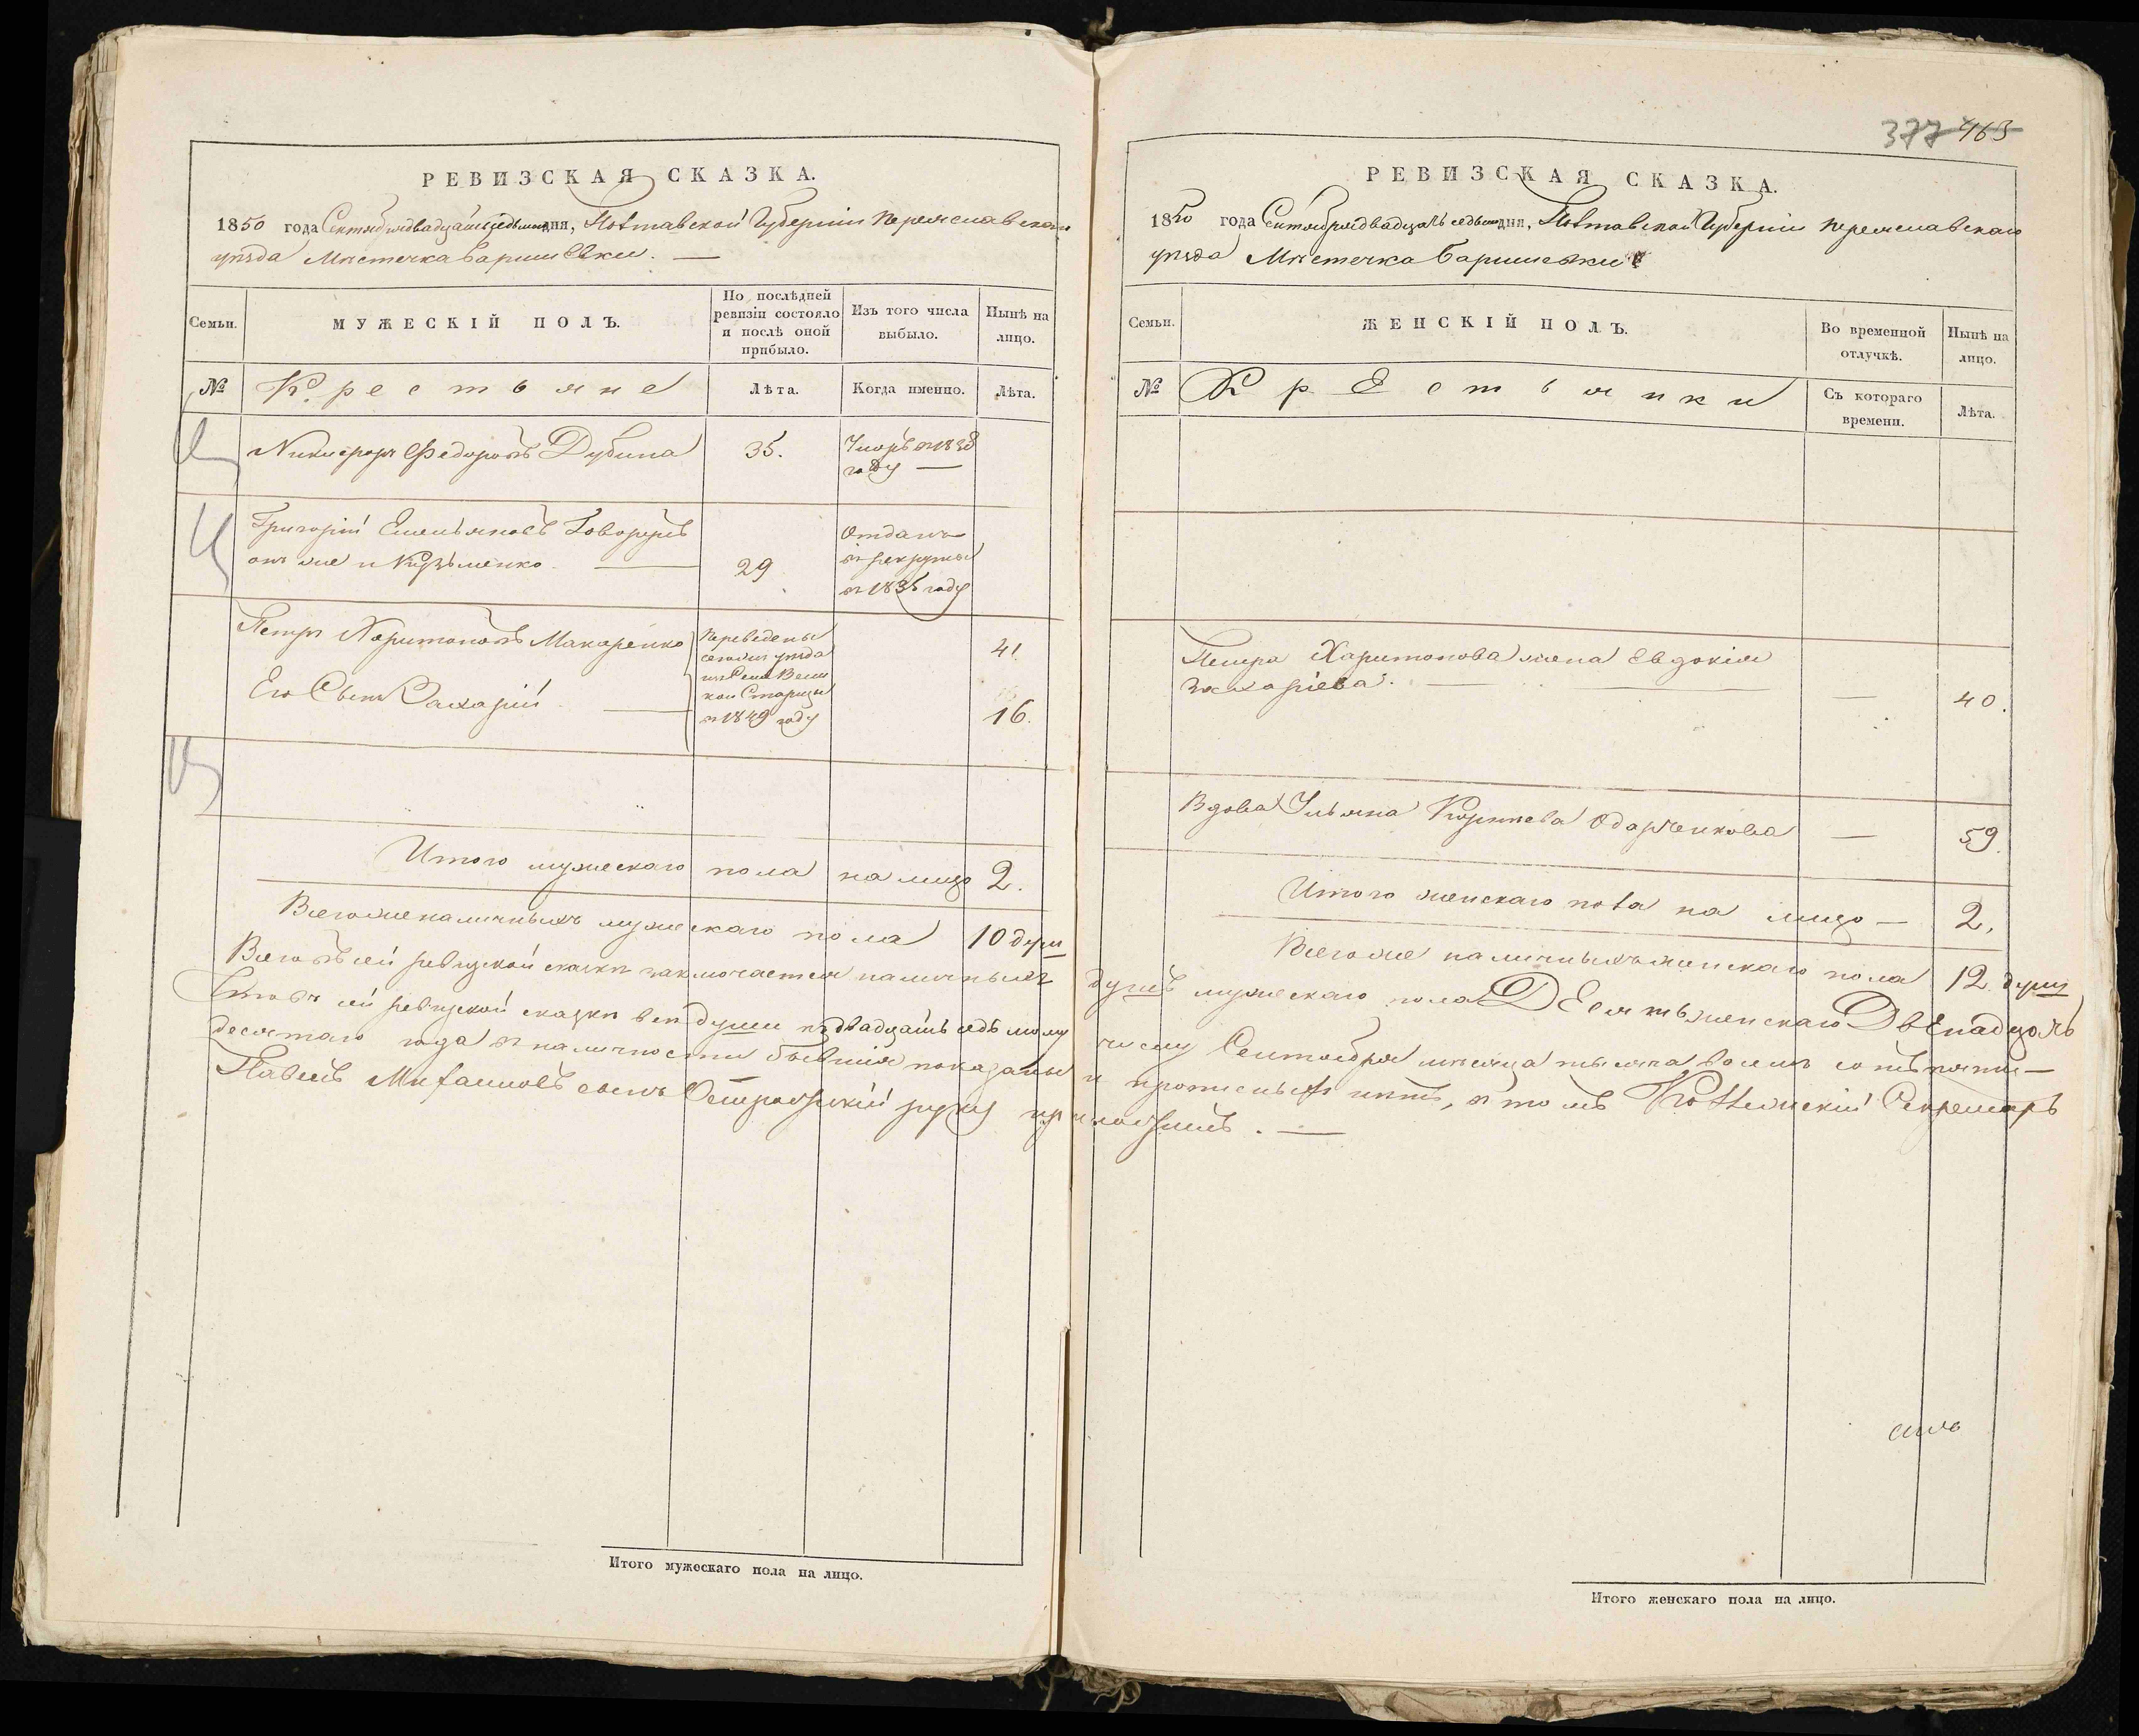 РЕВИЗСКАЯ СКАЗКА.
1850 года Сентября двадцать седьмого дня, Полтавской Губерніи Переяславскаго
уѣзда Мѣстечка Баришевки. —
Семьи.
МУЖЕСКІЙ ПОЛЪ.
По послѣдней ревизіи состояло и послѣ оной прибыло.
Изъ того числа выбыло.
Нынѣ на лицо.
№
Крестьяне
Лѣта.
Когда именно.
Лѣта.
Никифоръ Федоровъ Дубина
35.
Умеръ въ 1838
году —
Григорій Емельяновъ Говорунъ
онъ же и Кузьменко. —
29
Отданъ
въ рекруты
въ 1836 году
Петръ Харитоновъ Макаренко
41.
Его Сынъ Захарій —
16.
Переведены
сегожъ уѣзда
изъ Села Вели
кой Старицы
въ 1849 году
Итого мужескаго пола на лицо 2.
Всегоже наличныхъ мужескаго пола 10 душ
377 463
РЕВИЗСКАЯ СКАЗКА.
1850 года Сентября двадцать седьмого дня, Полтавской Губерніи Переяславскаго
уѣзда Мѣстечка Баришевки
Семьи.
ЖЕНСКІЙ ПОЛЪ.
Во временной отлучкѣ.
Нынѣ на лицо.
№
Крестьянки
Съ котораго времени.
Лѣта.
Петра Харитонова жена Евдокія
Захаріева. — —
40.
Вдова Ульяна Корнѣева Одарченкова —
59.
Итого женскаго пола на лицо — 2.
Всегоже наличныхъ женскаго пола 12. душ
Всего въ сей ревизской сказкѣ заключается наличныхъ душъ мужескаго пола Десять женскаго Двенадцать
Что въ сей ревизской сказкѣ все души къ двадцать седьмому числу Сентября мѣсяца тысяча восемь сотъ пять—
десятаго года въ наличности бывшія показаны и прописныхъ нѣтъ, въ томъ Коллежскій Секретарь
Павелъ Михаиловъ сынъ руку приложилъ. —
Итого мужескаго пола на лицо.
Итого женскаго пола на лицо.